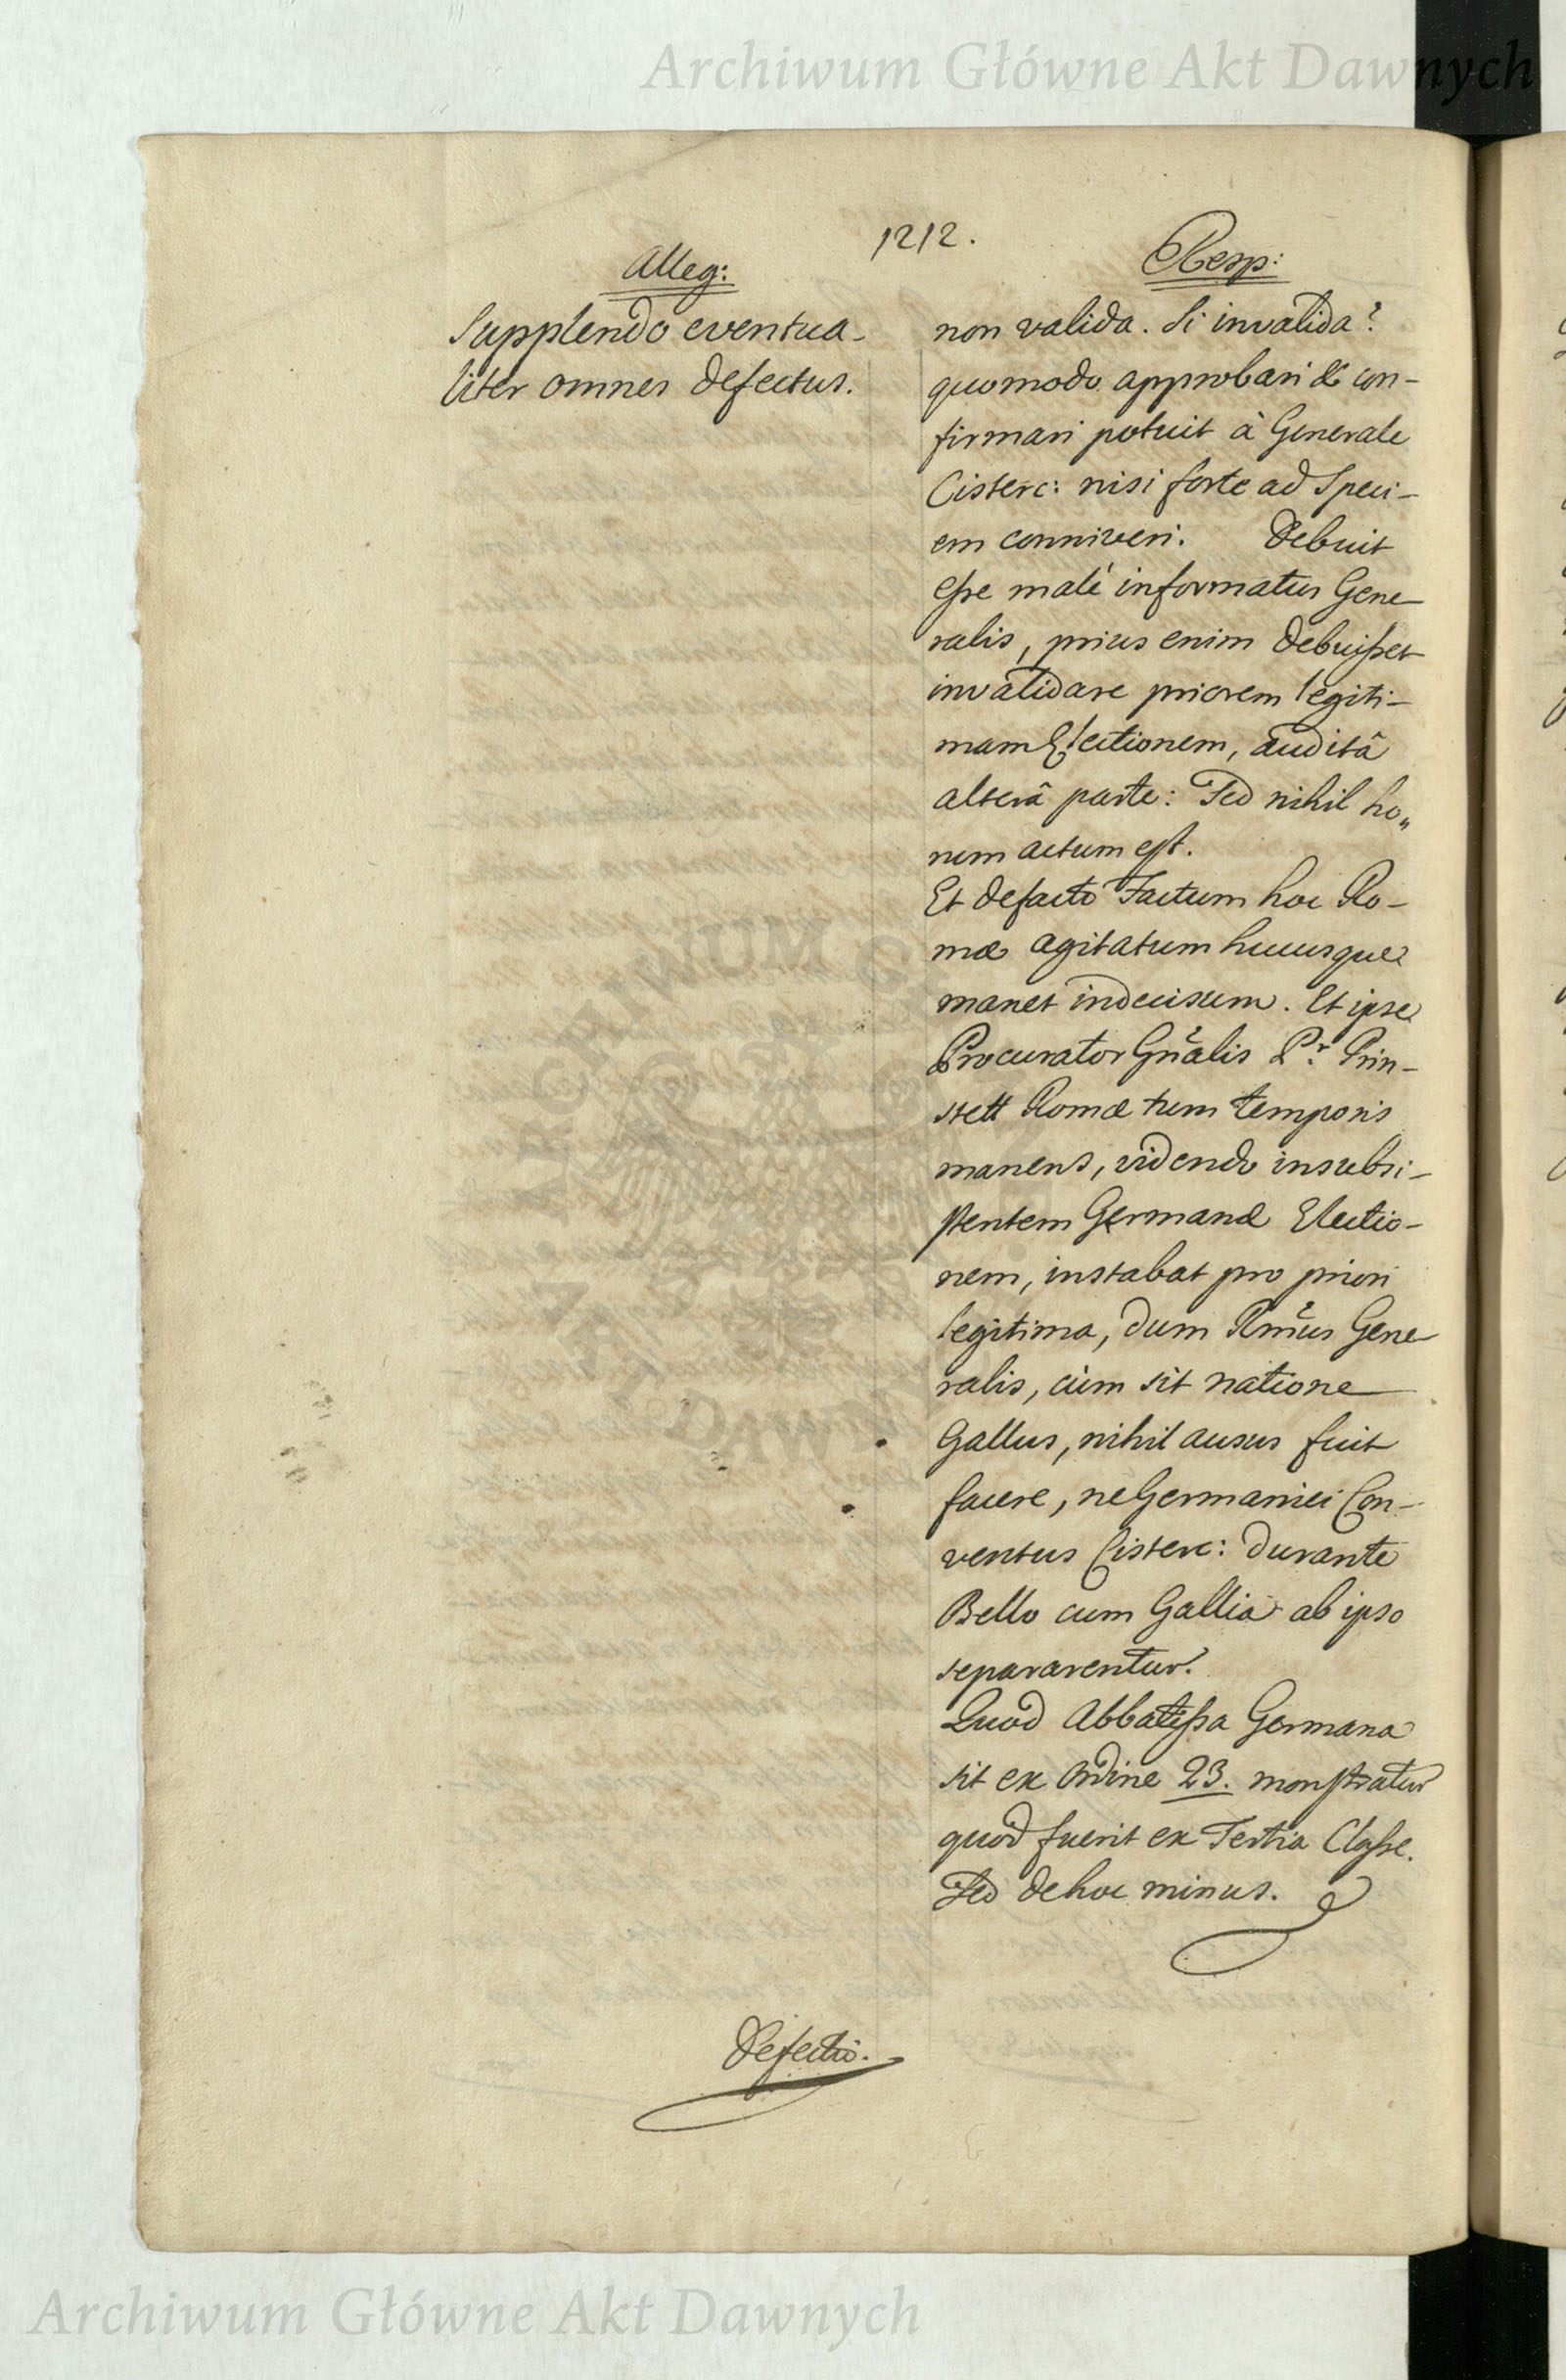 Archiwum Główne Akt Dawnych
1212.
Alleg:
Supplendo eventua-
liter omnes defectus.
Resp:
non valida. Si invalida?
quomodo approbari & con-
firmari potuit à Generale
Cisterc: nisi forte ad Speci-
em conniveri. Debuit
eſse malè informatus Gene-
ralis, prius enim debuiſset
invalidare priorem legiti-
mam Electionem, auditâ
alterâ parte: Sed nihil ho„
rum actum est.
Et defacto Factum hoc Ro-
mæ agitatum hucusque
manet indecisum. Et ipse
Procurator Gñalis P.r Prin-
stett Romæ tum temporis
manens, videndo insubsi-
stentem Germanæ Electio-
nem, instabat pro priori
legitima, dum Rm̃us Gene-
ralis, cùm sit natione
Gallus, nihil ausus fuit
facere, ne Germanici Con-
ventus Cisterc: durante
Bello cum Gallia ab ipso
separarentur.
Quod Abbatiſsa Germana
sit ex Ordine 23. monstratur
quòd fuerit ex Tertia Claſse.
Sed de hoc minus.
Defectio.
Archiwum Główne Akt Dawnych